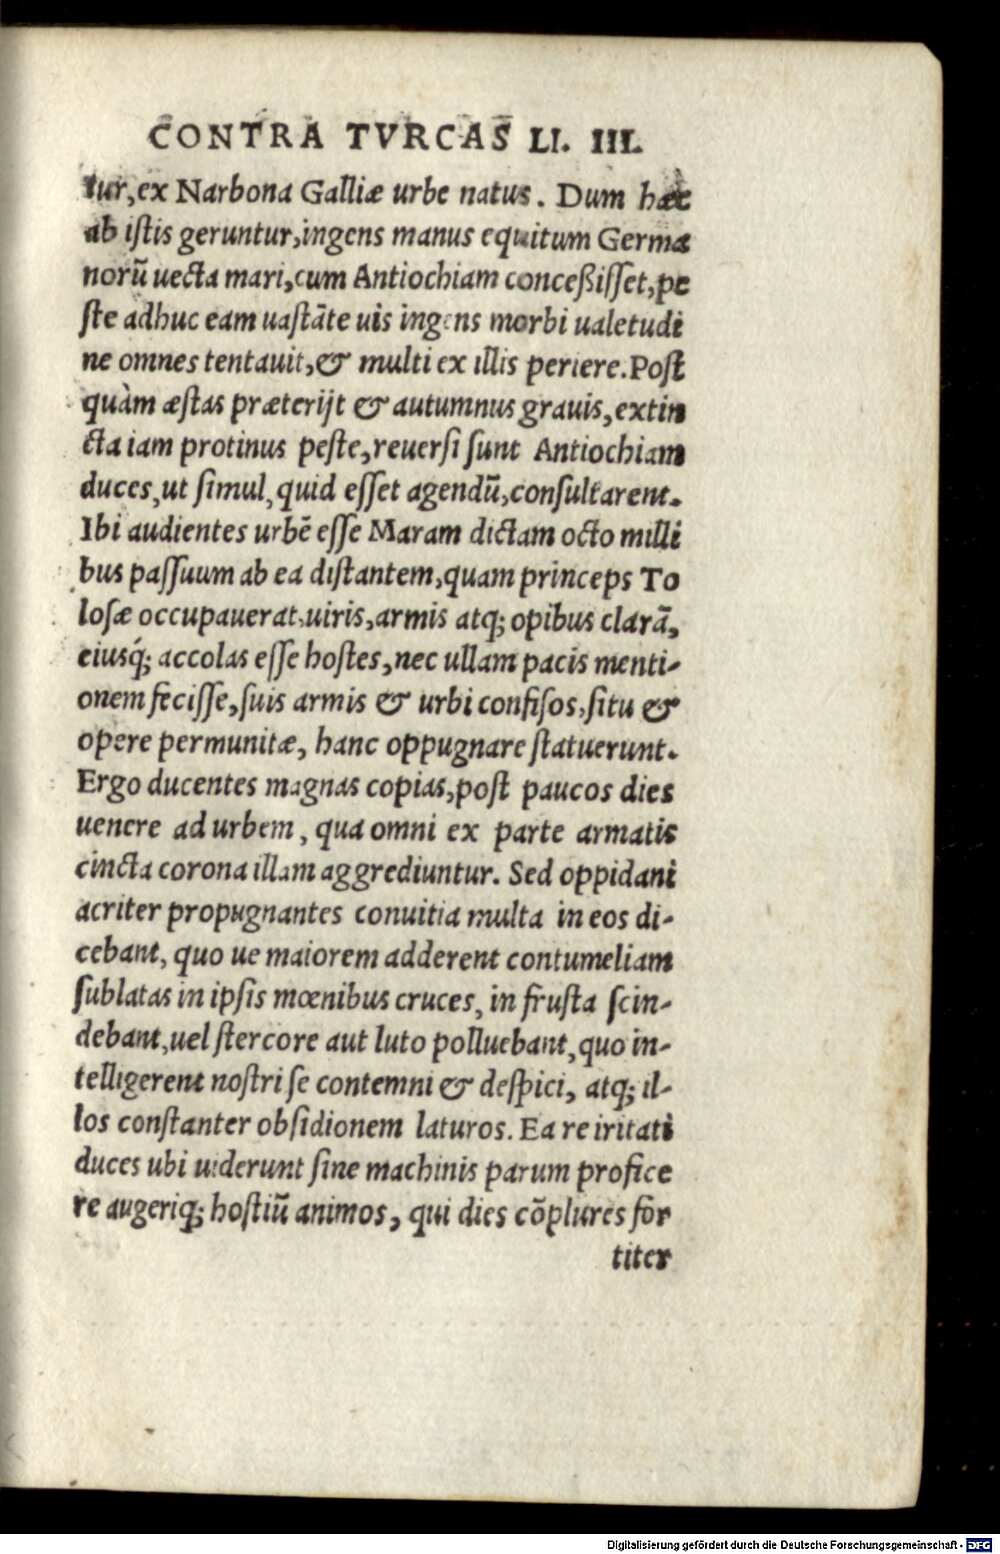 CONTRA TVRCAS LI. III.
tur, ex Narbona Galliæ urbe natus. Dum hæc
ab istis geruntur, ingens manus equitum Germa
norũ uecta mari, cum Antiochiam conceßisset, pe
ste adhuc eam uastãte uis ingens morbi ualetudi
ne omnes tentauit, & multi ex illis periere. Post
quàm æstas præterijt & autumnus grauis, extin
cta iam protinus peste, reuersi sunt Antiochiam
duces, ut simul, quid esset agendũ, consultarent.
Ibi audientes urbẽ esse Maram dictam octo milli
bus passuum ab ea distantem, quam princeps To
losæ occupauerat, uiris, armis atq; opibus clarã,
eiusq́; accolas esse hostes, nec ullam pacis menti-
onem fecisse, suis armis & urbi confisos, situ &
opere permunitæ, hanc oppugnare statuerunt.
Ergo ducentes magnas copias, post paucos dies
uenere ad urbem, qua omni ex parte armatis
cincta corona illam aggrediuntur. Sed oppidani
acriter propugnantes conuitia multa in eos di-
cebant, quo ue maiorem adderent contumeliam
sublatas in ipsis mœnibus cruces, in frusta scin-
debant, uel stercore aut luto polluebant, quo in-
telligerent nostri se contemni & despici, atq; il-
los constanter obsidionem laturos. Ea re iritati
duces ubi uiderunt sine machinis parum profice
re augeriq; hostiũ animos, qui dies cõplures for
titer
Digitalisierung gefördert durch die Deutsche Forschungsgemeinschaft - DFG